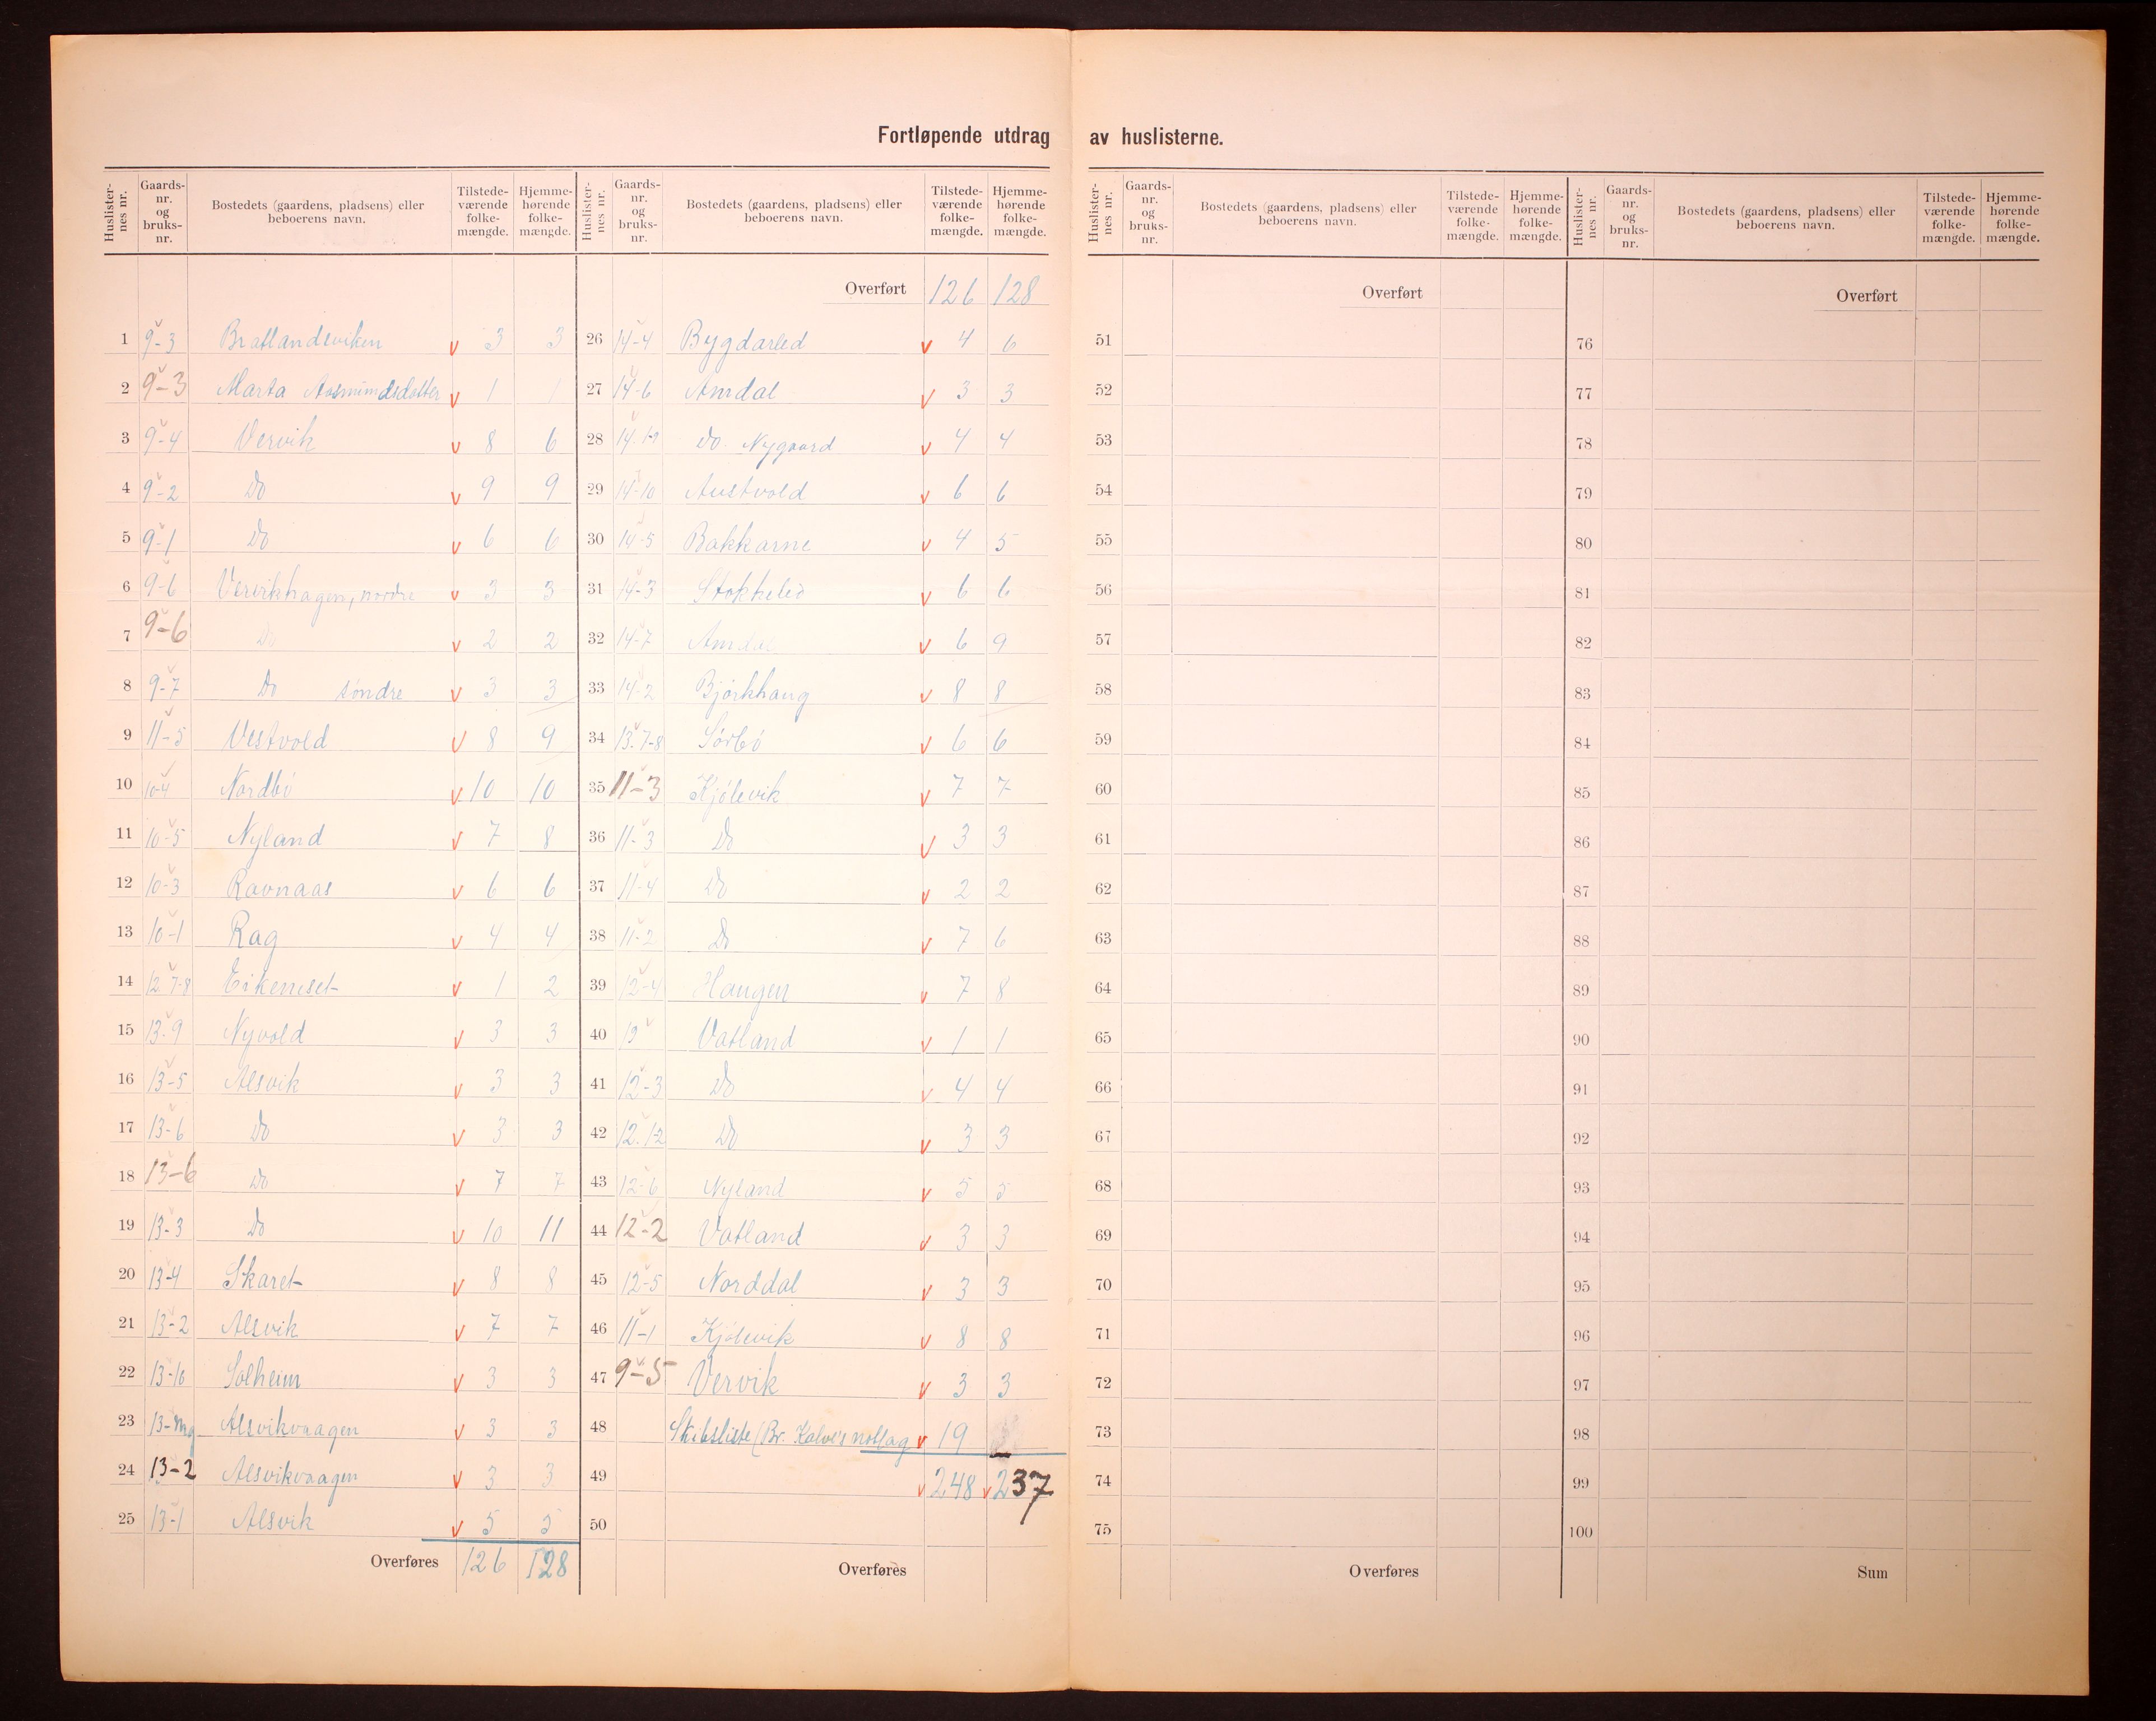 Fortløpende utdrag av huslisterne.
Huslister-nes nr. Gaards-nr. og bruks-nr. Bostedets (gaardens, pladsens) eller beboerens navn. Tilstede-værende folke-mængde. Hjemme-hørende folke-mængde.
1 9-3 Bratlandsviken v 3 3
2 9-3 Marta Aasmundsdatter v 1 1
3 9-4 Vervik v 8 6
4 9-2 Do v 9 9
5 9-1 Do v 6 6
6 9-6 Vervikhagen, nordre v 3 3
7 9-6 Do v 2 2
8 9-7 Do søndre v 3 3
9 11-5 Vestvold v 8 9
10 10-4 Nordbø v 10 10
11 10-5 Nyland v 7 8
12 10-3 Ravnaas v 6 6
13 10-1 Rag v 4 4
14 12.7-8 Eikeneset v 1 2
15 13.9 Nyvold v 3 3
16 13-5 Alsvik v 3 3
17 13-6 Do v 3 3
18 13-6 Do v 7 7
19 13-3 Do v 10 11
20 13-4 Skaret v 8 8
21 13-2 Alsvik v 7 7
22 13-10 Solheim v 3 3
23 13- Alsvikvaagen v 3 3
24 13-2 Alsvikvaagen v 3 3
25 13-1 Alsvik v 5 5
Overføres 126 128
Huslister-nes nr. Gaards-nr. og bruks-nr. Bostedets (gaardens, pladsens) eller beboerens navn. Tilstede-værende folke-mængde. Hjemme-hørende folke-mængde.
Overført 126 128
26 14-4 Bygdarled v 4 6
27 14-6 Amdal v 3 3
28 14. Do. Nygaard v 4 4
29 14-10 Austvold v 6 6
30 14-5 Bakkarne v 4 5
31 14-3 Stokkelid v 6 6
32 14-7 Amdal v 6 9
33 14-2 Bjørkhaug v 8 8
34 13.7-8 Sørbø v 6 6
35 11-3 Kjølevik v 7 7
36 11-3 Do v 3 3
37 11-4 Do v 2 2
38 11-2 Do v 7 6
39 12-4 Haugen v 7 8
40 Vatland v 1 1
41 12-3 Do v 4 4
42 12.1-2 Do v 3 3
43 12-6 Nyland v 5 5
44 12-2 Vatland v 3 3
45 12-5 Norddal v 3 3
46 11-1 Kjølevik v 8 8
47 9-5 Vervik v 3 3
48 Skibsliste (Br. Kalve's notlag v 19 -
49 v 248 v 237
50
Overføres
Huslister-nes nr. Gaards-nr. og bruks-nr. Bostedets (gaardens, pladsens) eller beboerens navn. Tilstede-værende folke-mængde. Hjemme-hørende folke-mængde.
Overført
51
52
53
54
55
56
57
58
59
60
61
62
63
64
65
66
67
68
69
70
71
72
73
74
75
Overføres
Huslister-nes nr. Gaards-nr. og bruks-nr. Bostedets (gaardens, pladsens) eller beboerens navn. Tilstede-værende folke-mængde. Hjemme-hørende folke-mængde.
Overført
76
77
78
79
80
81
82
83
84
85
86
87
88
89
90
91
92
93
94
95
96
97
98
99
100
Sum